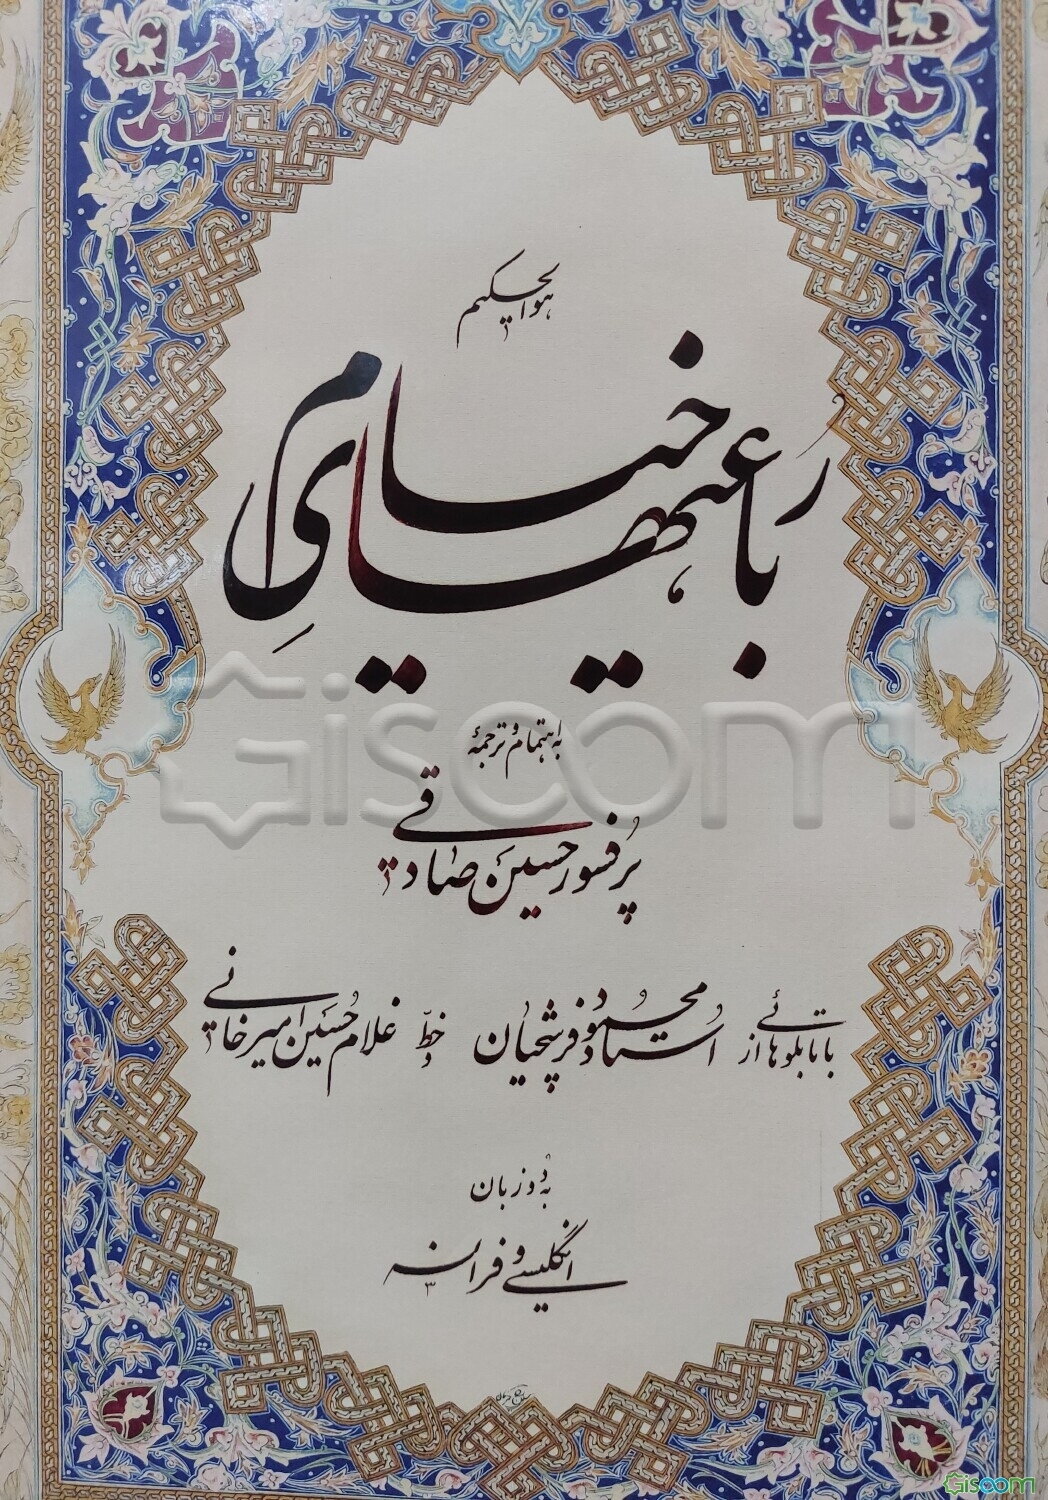 هوالحکیم
رباعیهای خیام
به اهتمام و ترجمهٔ
پرفسور حسین صادقی
با تابلوهائی از استاد محمود فرشچیان خطّ غلامحسین امیرخانی
به دو زبان
انگلیسی و فرانسه
Giscom
Giscom